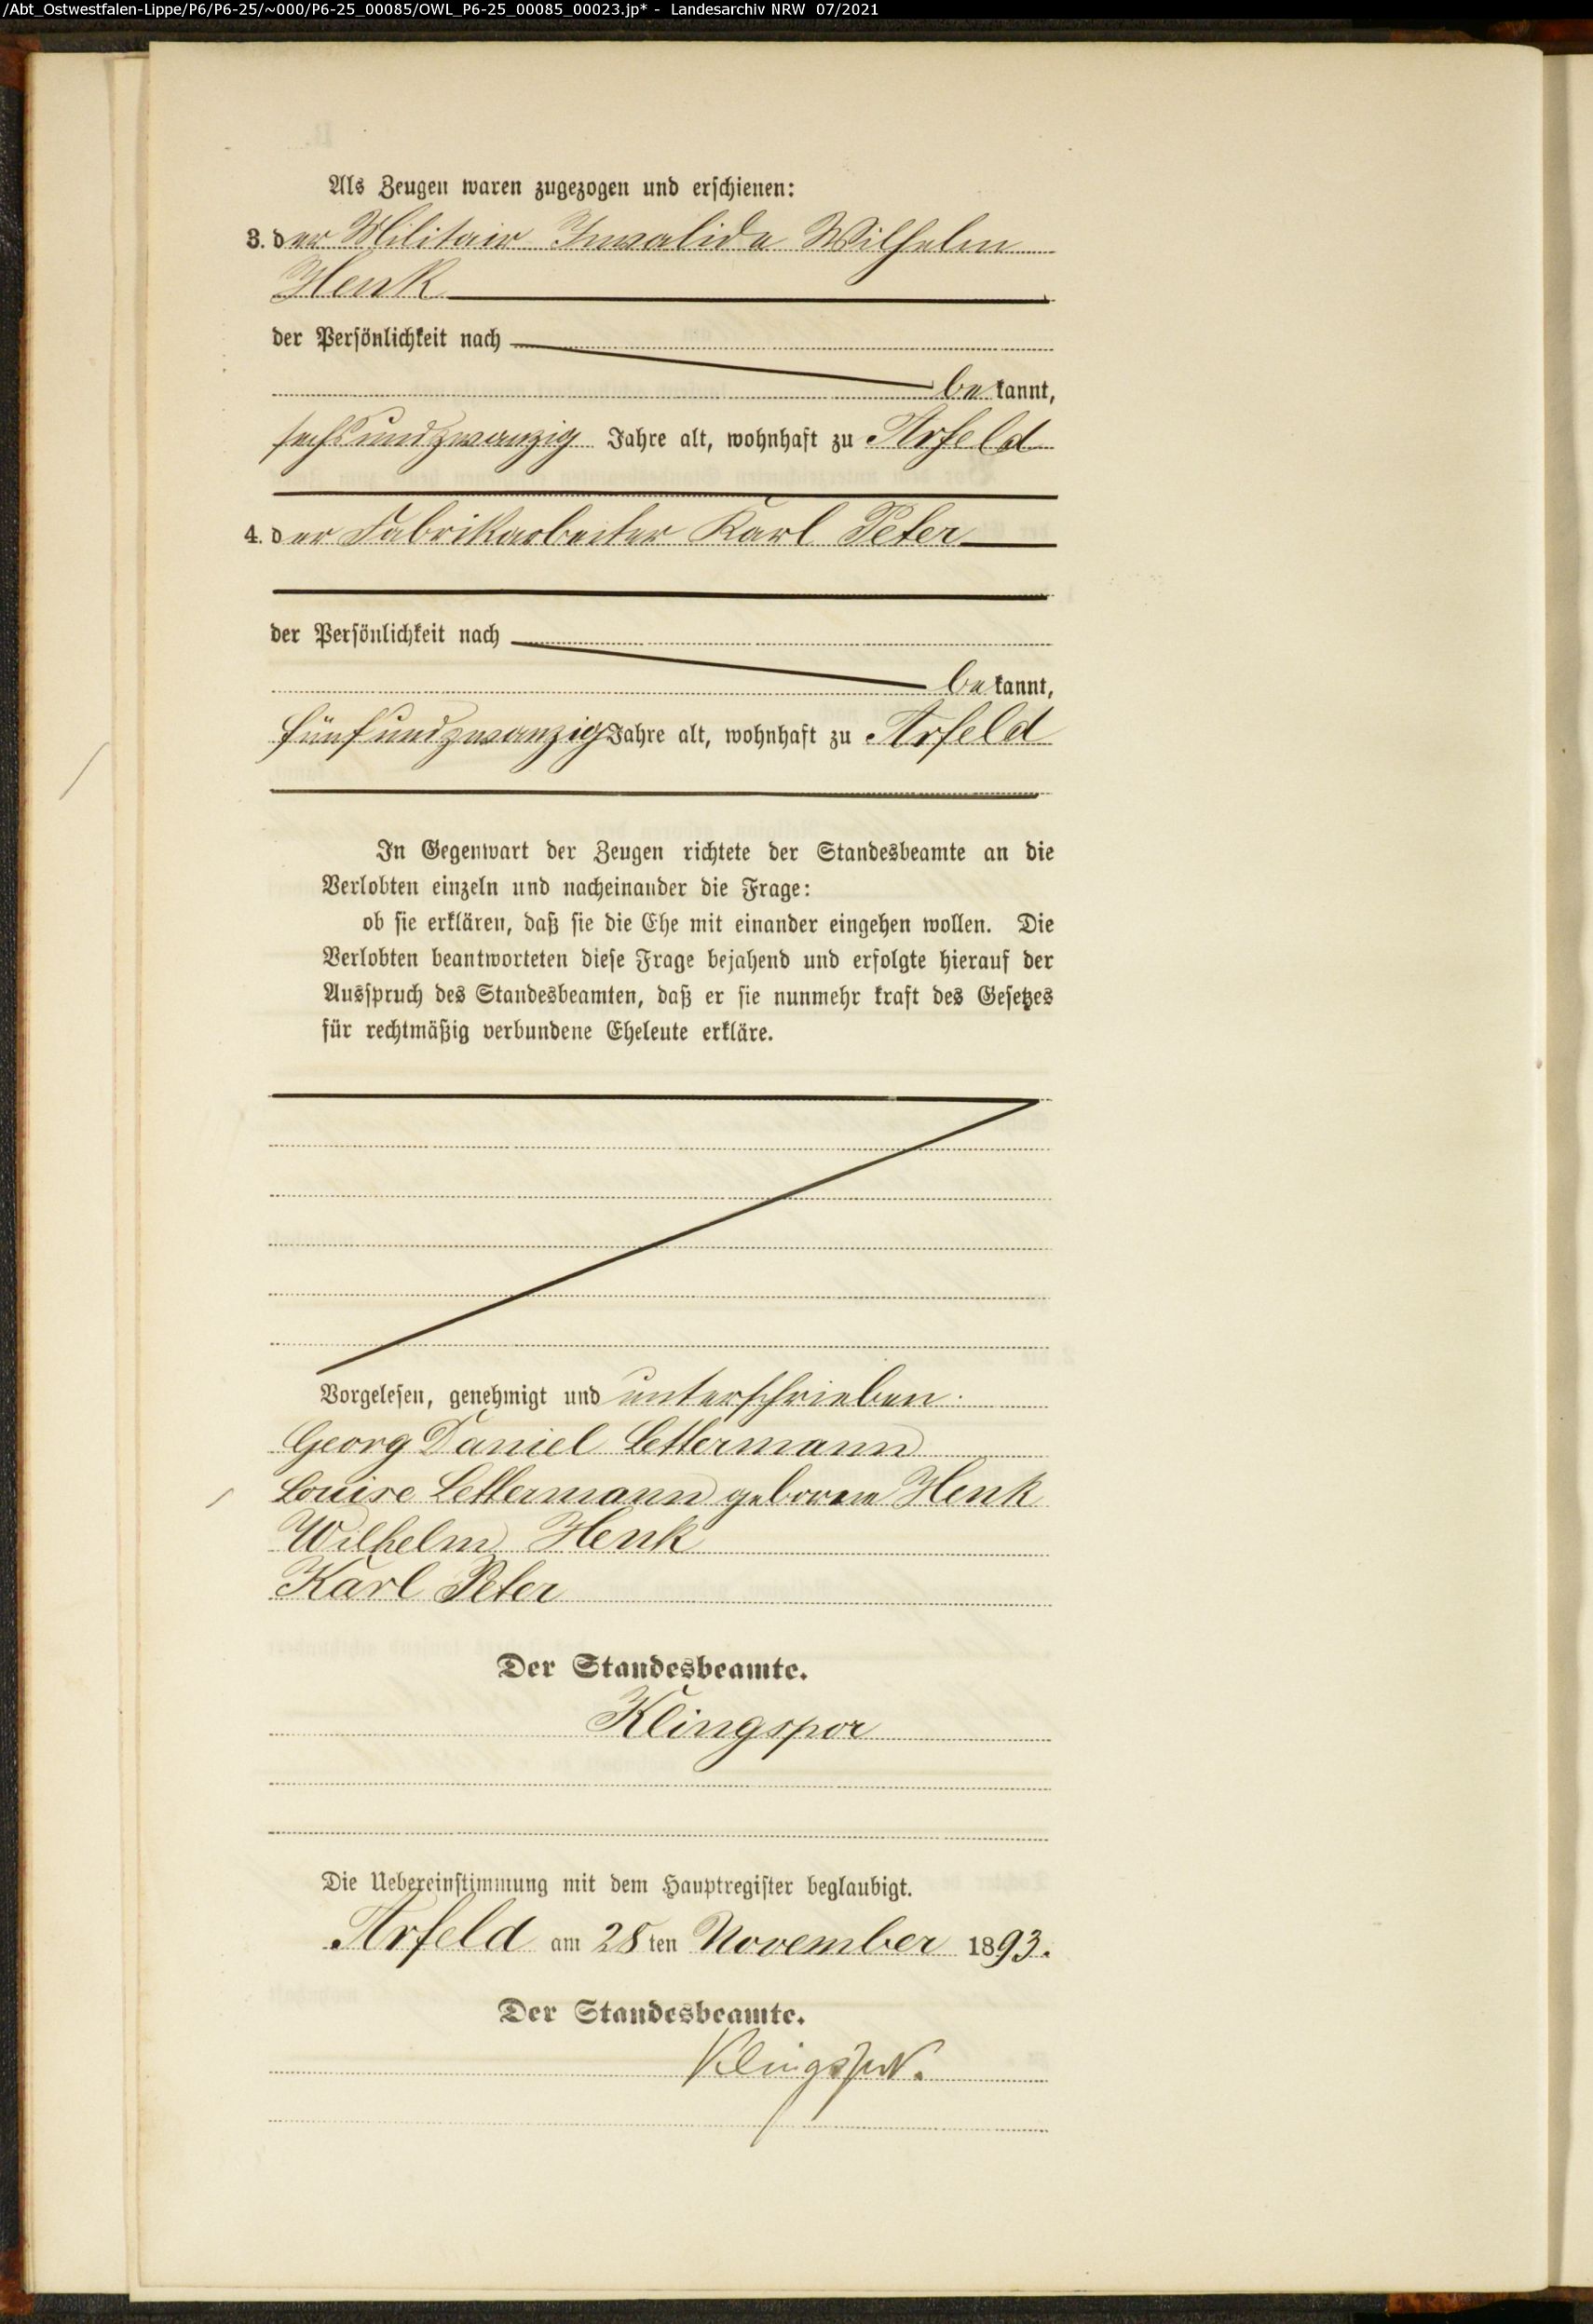 /Abt_Ostwestfalen-Lippe/P6/P6-25/~000/P6-25_00085/OWL_P6-25_00085_00023.jp* - Landesarchiv NRW 07/2021
Als Zeugen waren zugezogen und erschienen:
3. der Militair Invalide Wilhelm
Henk
der Persönlichkeit nach
bekannt,
sechsundzwanzig Jahre alt, wohnhaft zu Arfeld
4. der Fabrikarbeiter Karl Peter
der Persönlichkeit nach
bekannt,
fünfundzwanzig Jahre alt, wohnhaft zu Arfeld
In Gegenwart der Zeugen richtete der Standesbeamte an die
Verlobten einzeln und nacheinander die Frage:
ob sie erklären, daß sie die Ehe mit einander eingehen wollen. Die
Verlobten beantworteten diese Frage bejahend und erfolgte hierauf der
Ausspruch des Standesbeamten, daß er sie nunmehr kraft des Gesetzes
für rechtmäßig verbundene Eheleute erkläre.
Vorgelesen, genehmigt und unterschrieben.
Georg Daniel Lettermann
Louise Lettermann geborene Henk
Wilhelm Henk
Karl Peter
Der Standesbeamte.
Klingspor
Die Uebereinstimmung mit dem Hauptregister beglaubigt.
Arfeld am 28ten November 1893.
Der Standesbeamte.
Klingspor.